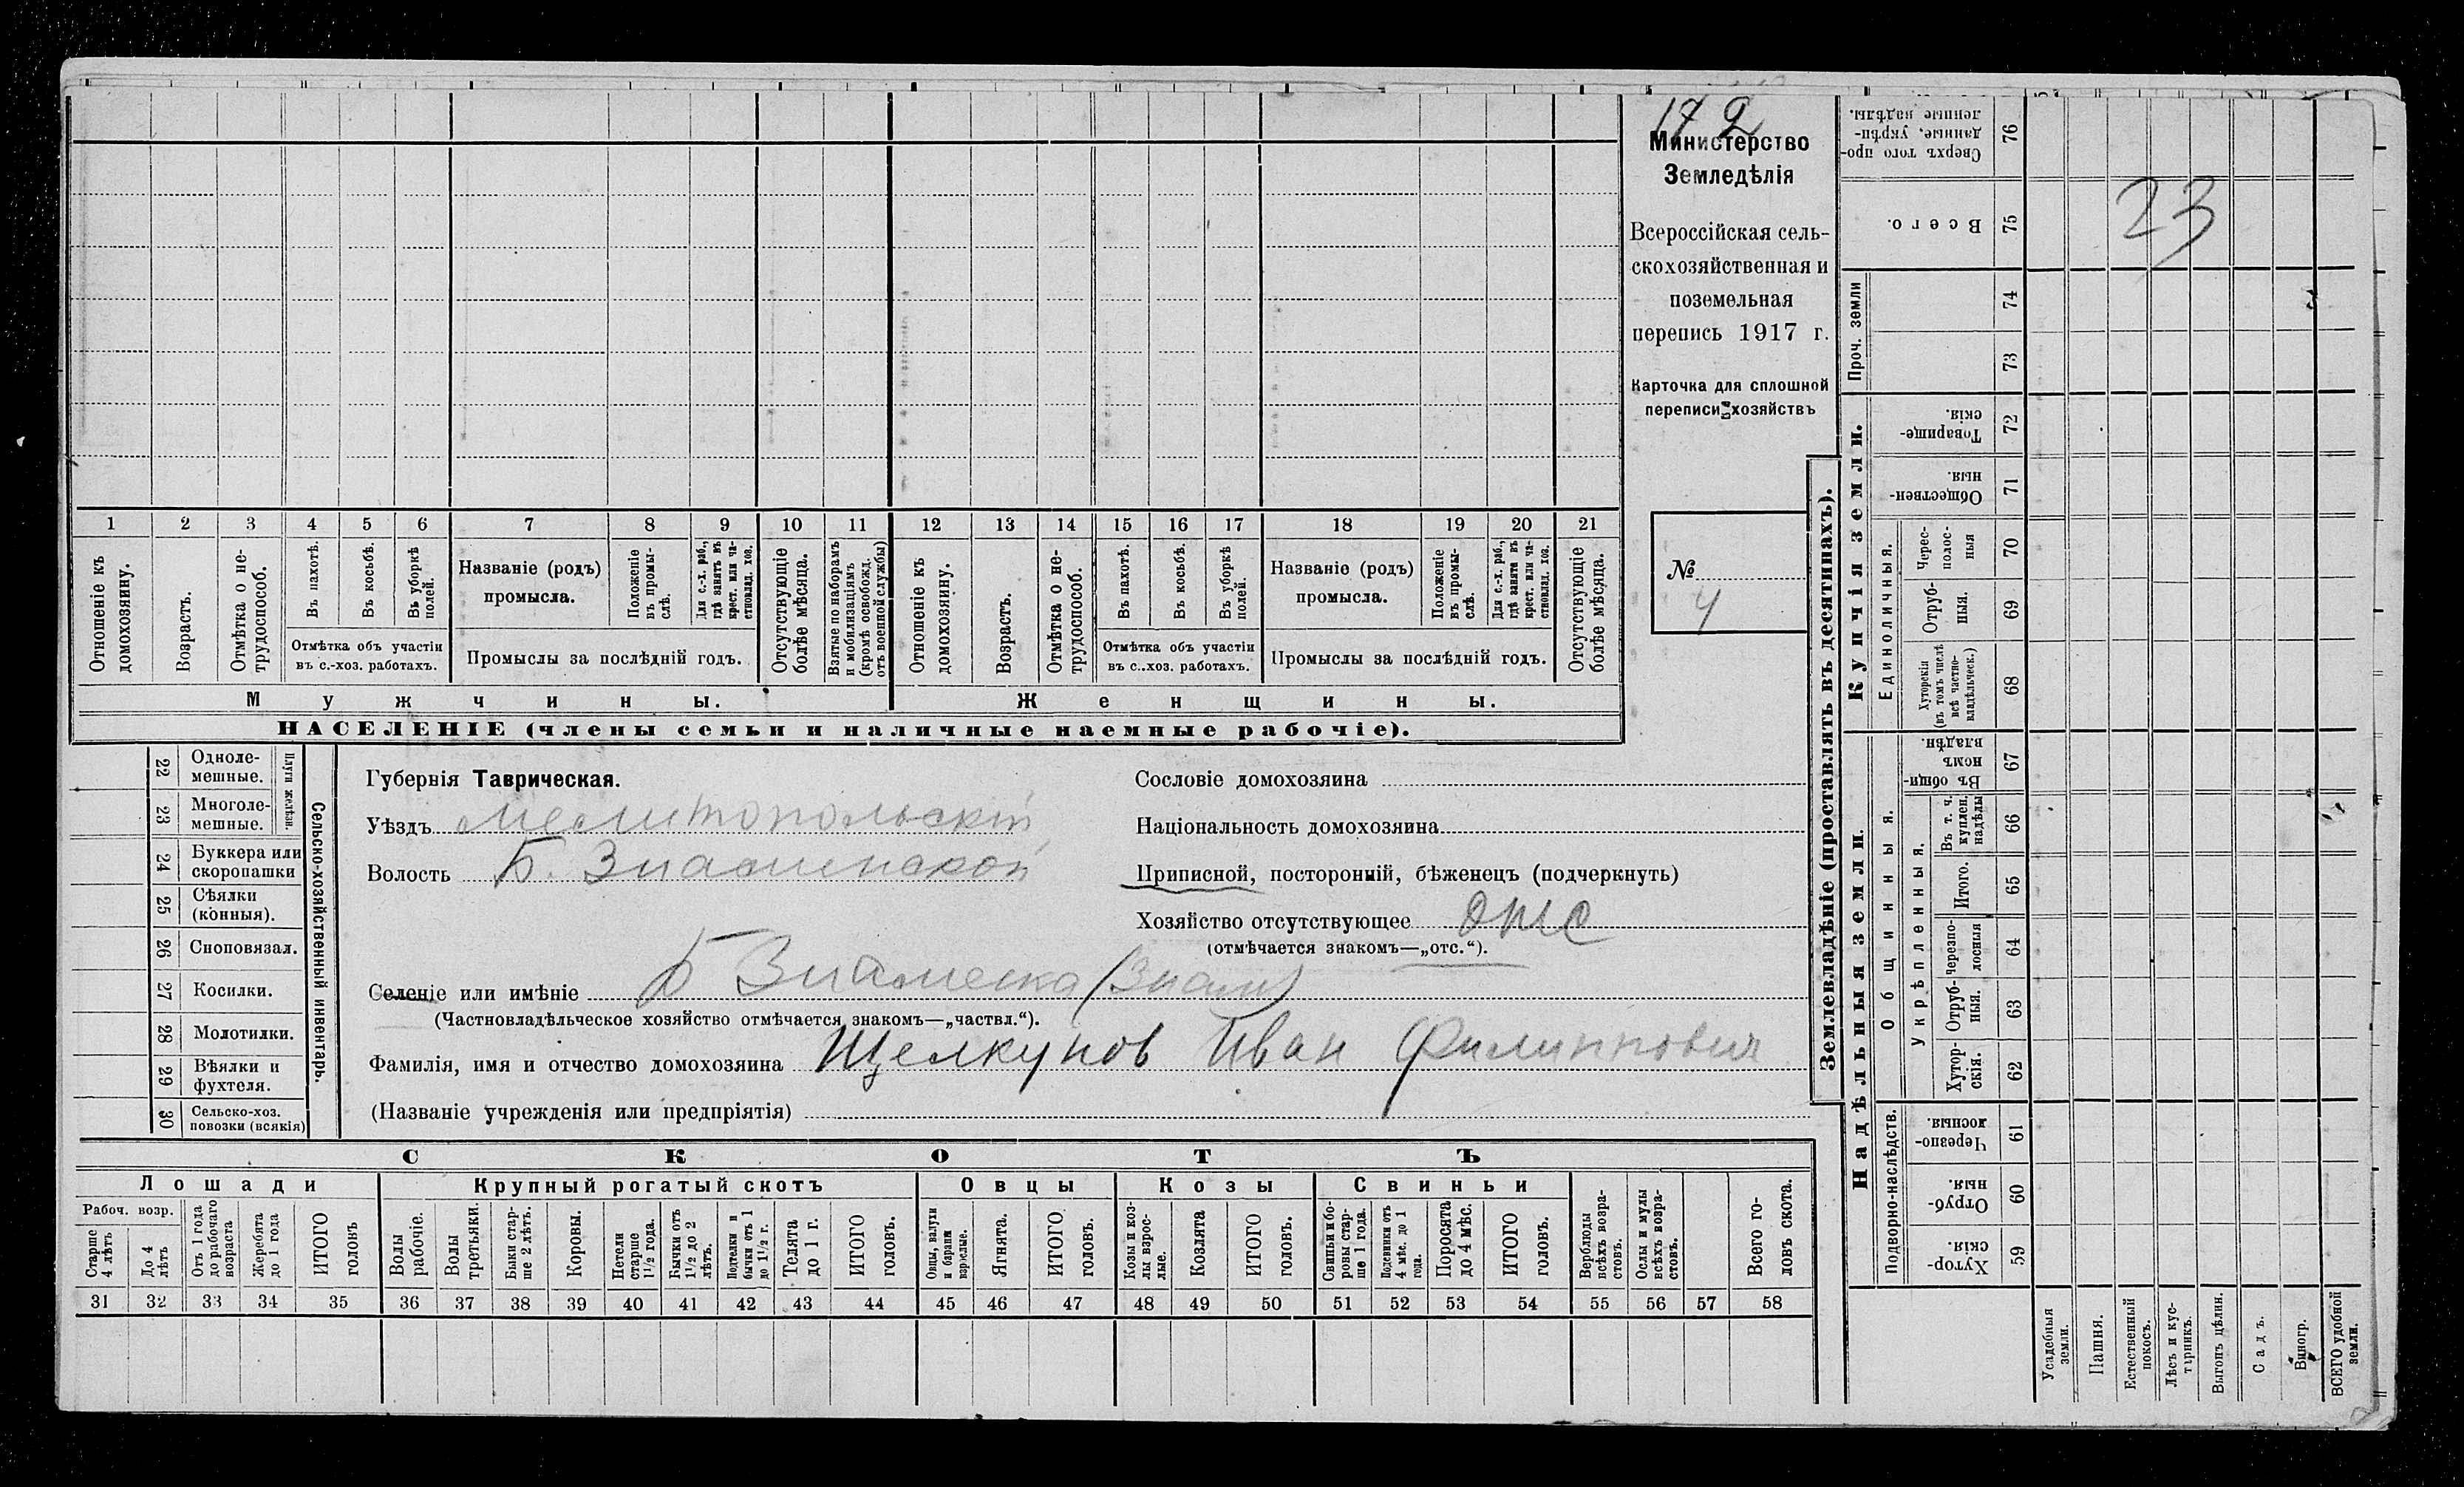 172
Министерство
Земледѣлія
Всероссійская сель-
скохозяйственная и
поземельная
перепись 1917 г.
Карточка для сплошной
переписи хозяйствъ
№
4
1 2 3 4 5 6 7 8 9 10 11 12 13 14 15 16 17 18 19 20 21
Отношеніе къ домохозяину.
Возрастъ.
Отмѣтка о не-трудоспособ.
Въ пахотѣ.
Въ косьбѣ.
Въ уборкѣ полей.
Отмѣтка объ участіи
въ с.-хоз. работахъ.
Названіе (родъ)
промысла.
Положеніе въ промы-слѣ.
Для с.-х. раб., гдѣ занятъ въ крест. или ча-стновлад. хоз.
Промыслы за послѣдній годъ.
Отсутствующіе болѣе мѣсяца.
Взятые по наборамъ и мобилизаціямъ (кромѣ освобожд. отъ военной службы)
Отношеніе къ домохозяину.
Возрастъ.
Отмѣтка о не-трудоспособ.
Въ пахотѣ.
Въ косьбѣ.
Въ уборкѣ полей.
Отмѣтка объ участіи
въ с..хоз. работахъ.
Названіе (родъ)
промысла.
Положеніе въ промы-слѣ.
Для с.-х. раб., гдѣ заняте въ крест. или ча-стновлад. хоз.
Промыслы за послѣдній годъ.
Отсутствующіе болѣе мѣсяца.
Мужчины. Женщины.
НАСЕЛЕНІЕ (члены семьи и наличные наемные рабочіе).
22 Одноле-мешные.
23 Многоле-мешные.
Плуги желѣзн.
24 Буккера или скоропашки
25 Сѣялки (конныя).
26 Сноповязал.
27 Косилки.
28 Молотилки.
29 Вѣялки и фухтеля.
30 Сельско-хоз. повозки (всякія)
Сельско-хозяйственный инвентарь.
Губернія Таврическая.
Уѣздъ Мелитопольскій
Волость Б. Знаменской
Сословіе домохозяина
Національность домохозяина
Приписной, посторонній, бѣженецъ (подчеркнуть)
Хозяйство отсутствующее отс
(отмѣчается знакомъ—„отс.“).
Селеніе или имѣніе Б Знаменка (Знам)
(Частновладѣльческое хозяйство отмѣчается знакомъ—„частвл.“).
Фамилія, имя и отчество домохозяина Щелкунов Иван Филиппович
(Названіе учрежденія или предпріятія)
СКОТЪ
Лошади Крупный рогатый скотъ Овцы Козы Свиньи
Рабоч. возр.
Старше 4 лѣтъ
До 4 лѣтъ
Отъ 1 года до рабочаго возраста
Жеребята до 1 года
ИТОГО головъ
Волы рабочіе.
Волы третьяки.
Быки стар-ше 2 лѣтъ.
Коровы.
Нетели старше 1 1/2 года.
Бычки отъ 1 1/2 до 2 лѣтъ.
Подтелки и бычки отъ 1 до 1 1/2 г.
Телята до 1 г.
ИТОГО головъ.
Овцы, валухи и бараны взрослые.
Ягнята.
ИТОГО головъ.
Козы и коз-лы взрос-лые.
Козлята
ИТОГО головъ.
Свиньи и бо-ровы стар-ше 1 года.
Подсвинки отъ 4 мѣс. до 1 года.
Поросята до 4 мѣс.
ИТОГО головъ.
Верблюды всѣхъ возра-стовъ.
Ослы и мулы всѣхъ возра-стовъ.
Всего го-ловъ скота.
31 32 33 34 35 36 37 38 39 40 41 42 43 44 45 46 47 48 49 50 51 52 53 54 55 56 57 58
Землевладѣніе (проставлять въ десятинахъ).
Сверхъ того про-данные, укрѣп-ленные надѣлы. 76
Всего. 75
23
Проч. земли
74
73
Купчія земли.
Товарище-скія. 72
Обществен-ныя. 71
Единоличныя.
Черес-полос-ныя 70
Отруб-ныя. 69
Хуторскія (въ томъ числѣ всѣ частно-владѣльческ.) 68
Надѣльныя земли.
Общинныя.
Въ общи-номъ владѣн. 67
Укрѣпленныя.
Въ т. ч. куплен. надѣлы 66
Итого. 65
Черезпо-лосныя 64
Отруб-ныя. 63
Хутор-скія. 62
Подворно-наслѣдств.
Черезпо-лосныя. 61
Отруб-ныя. 60
Хутор-скія. 59
Усадебныя земли.
Пашня.
Естественный покосъ.
Лѣсъ и кус-тарникъ.
Выгонъ цѣлин.
Садъ.
Виногр.
ВСЕГО удобной земли.